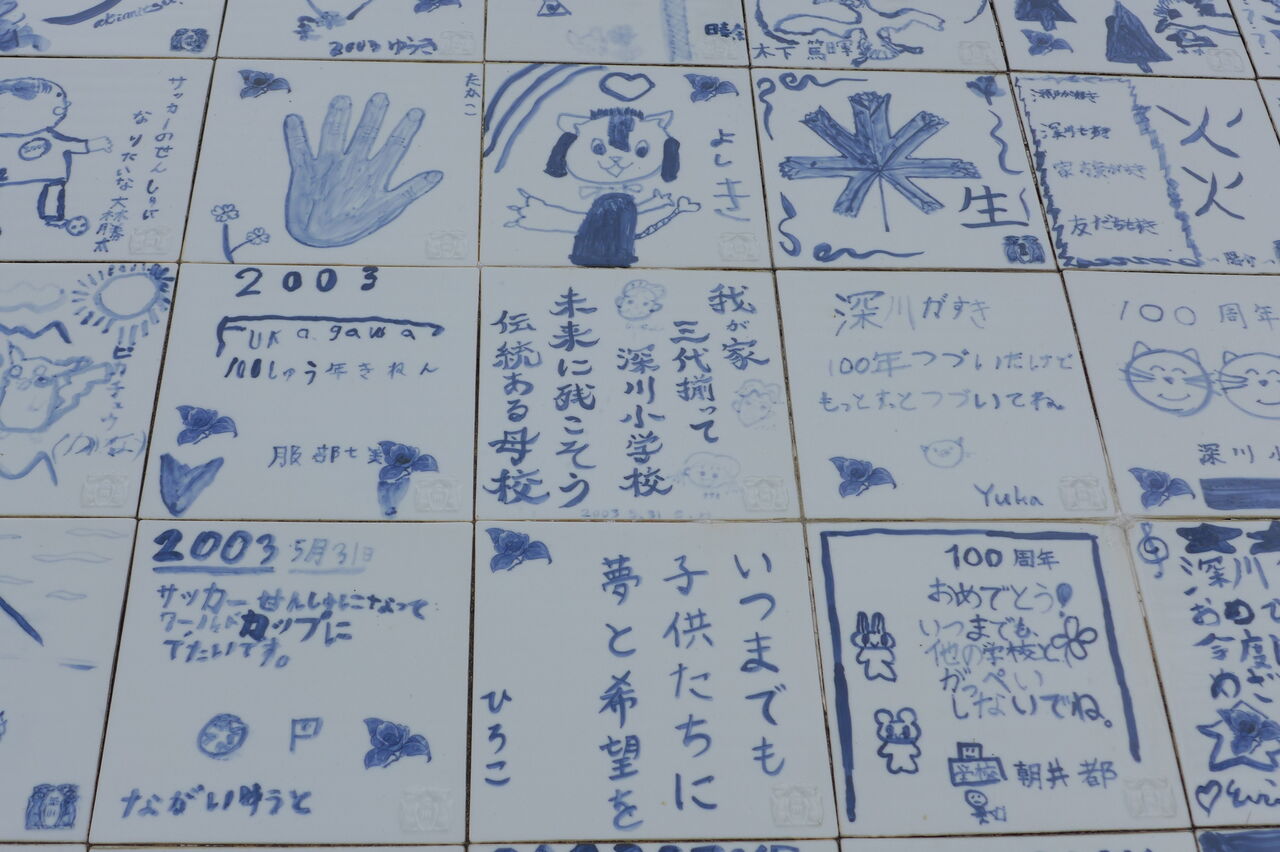 2003 ゆうき
木下 篤暉
サッカーのせんしゅに
なりたいな 大林勝太
たかこ
よしき
生
深川が好き
深川も好き
家族が好き
友だちも好き
火
火
ピカチュウ
(かな)
2003
FUKagawa
100しゅう年きねん
服部七実
我が家
三代揃って
深川小学校
未来に残こそう
伝統ある母校
深川がすき
100年つづいたけど
もっとずっとつづいてね
Yuka
100周年
深川小
2003 5月31日
サッカーせんしゅになって
ワールドカップに
でたいです。
ながいゆうと
いつまでも
子供たちに
夢と希望を
ひろこ
100周年
おめでとう!
いつまでも、
他の学校と
がっぺい
しないでね。
学校
朝井 都
深川
おめで
今度
めざ